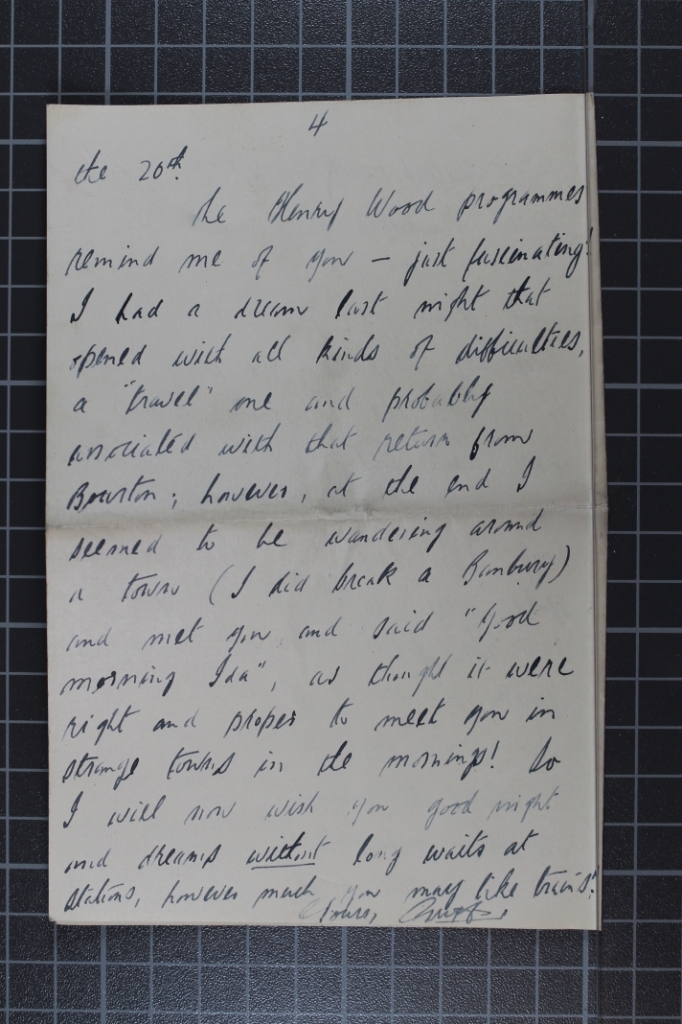 4
the 20th.
The Henry Wood programmes
remind me of you — just fascinating!
I had a dream last night that
opened with all kinds of difficulties,
a "travel" one and probably
associated with that return from
Bourton; however, at the end I
seemed to be wandering around
a town (I did break a Banbury)
and met you and said "Good
morning Ida", as thought it were
right and proper to meet you in
strange towns in the mornings! So
I will now wish you good night
and dreams without long waits at
stations, however much you may like trains!
Yours,